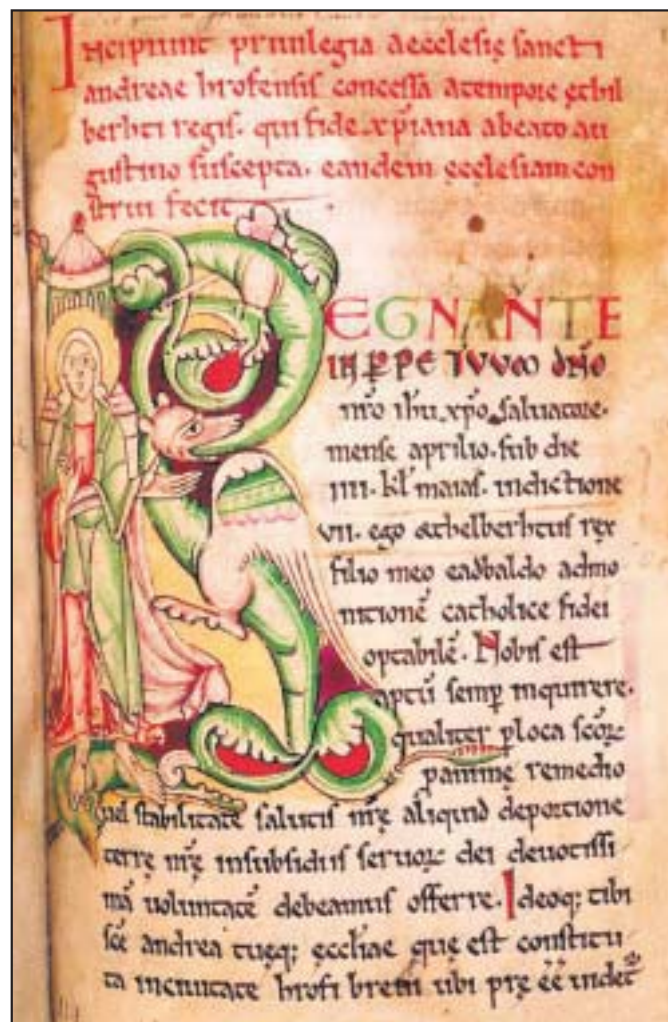 Incipiunt priuilegia aecclesię sancti
andreae hrofensis concessa a tempore ęthil
berhti regis. qui fide xp̄iana a beato au
gustino suscepta. eandem ęcclesiam con
strui fecit
REGNANTE
IN P̄PETVVM DN̄O
nr̄o ihū xp̄o saluatore.
mense aprilio. sub die
IIII. kl̄ maias. indictione
VII. ego æthelberhtus rex
filio meo eadbaldo admo
nitionē catholice fidei
optabilē. Nobis est
aptū semp̄ inquirere.
qualiter p̄ loca scōꝝ
p anime remedio
uel stabilitate salutis nr̄ę aliquid de portione
terrę nr̄ę in subsidiis seruoꝝ dei deuotissi
mā uoluntatē debeamus offerre. Ideoq; tibi
sc̄e andrea tuęq; ęccl̄iae quę est constitu
ta in ciuitate hrofi breui ubi pręē̄ē uidet᷑